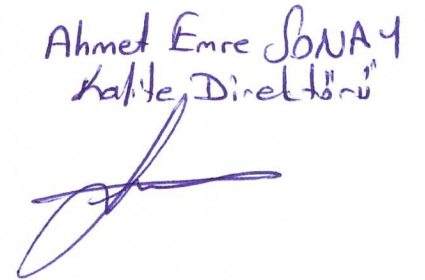 Ahmet Emre SONAY
Kalite Direktörü